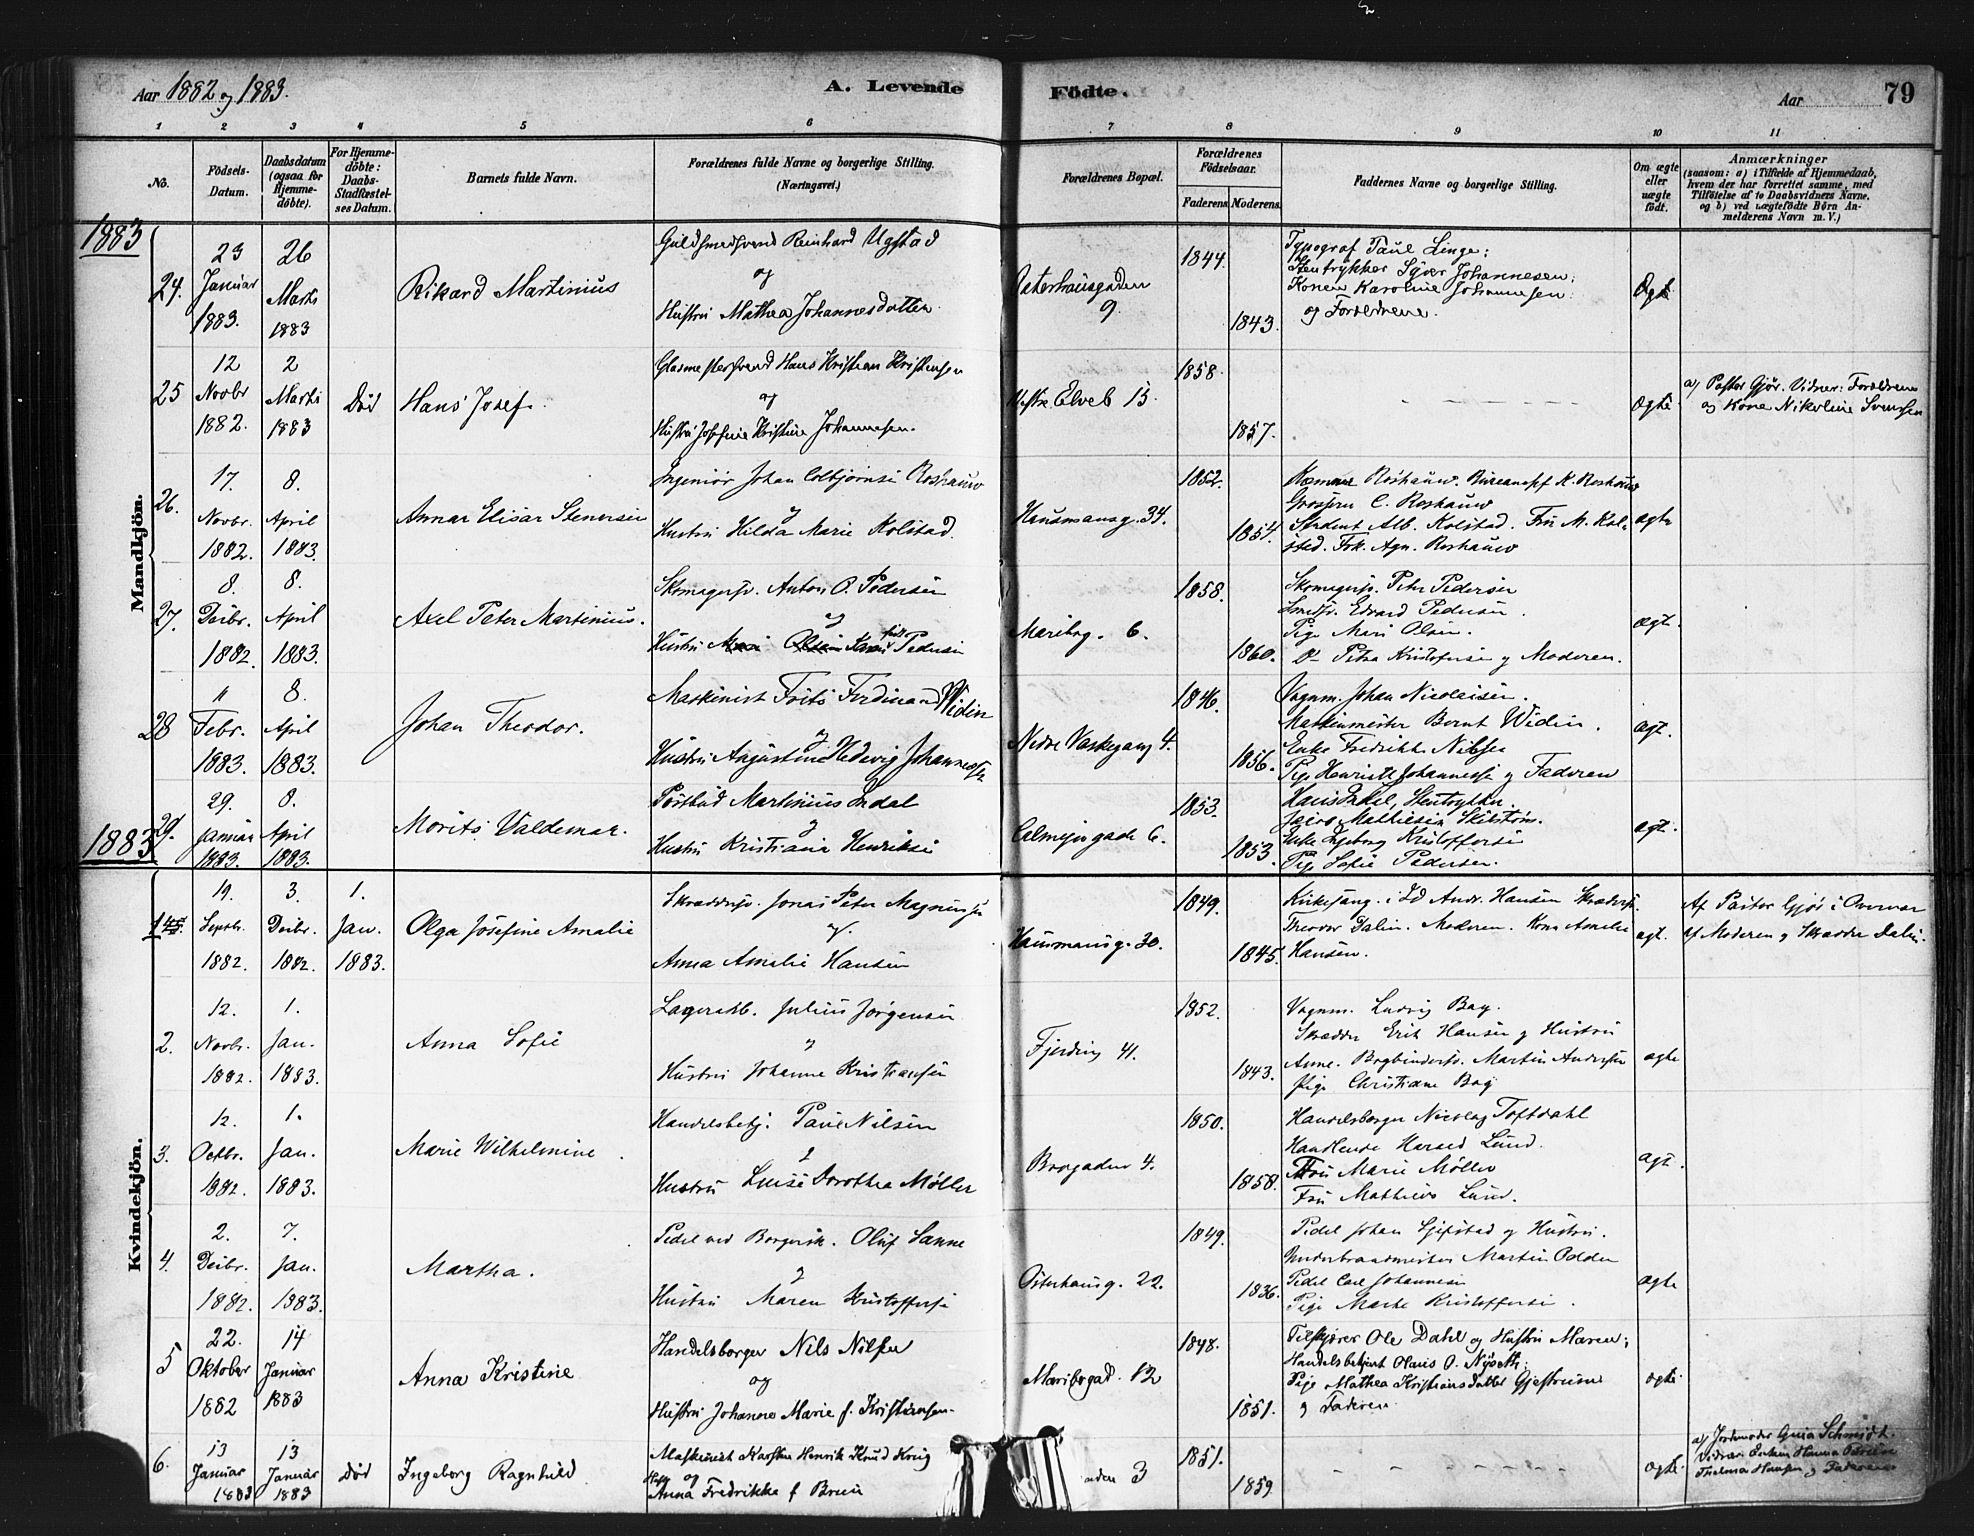 Aar 1882 og 1883.
A. Levende Födte.
Aar 79
1 2 3 4 5 6 7 8 9 10 11
No.
Födsels-Datum.
Daabsdatum (ogsaa for Hjemme-döbte).
For Hjemme-döbte: Daabs-Stadfæstel-ses Datum.
Barnets fulde Navn.
Forældrenes fulde Navne og borgerlige Stilling.
(Næringsvei.)
Forældrenes Bopæl.
Forældrenes Födselsaar.
Faderens. Moderens.
Faddernes Navne og borgerlige Stilling.
Om ægte eller uægte födt.
Anmærkninger
(saasom: a) i Tilfælde af Hjemmedaab,
hvem der har forrettet samme, med
Tilföielse af to Daabsvidners Navne,
og b) ved uægtefödte Börn An-
melderens Navn m. V.)
1883
Mandkjön.
24. 23 Januar 1883. 26 Marts 1883
Rikard Martinius
Guldsmedsvend Reinhard Ugstad
og
Hustru Mathea Johannesdatter
Osterhausgaden 9.
1844. 1843.
Typograf Paul Linge;
Stentrykker Syver Johannesen;
Konen Karoline Johannesen;
og Forældrene.
Ægte
25 12 Novbr 1882. 2 Marts 1883 Död
Hans Josef.
Glasmestersvend Hans Kristian Kristensen
og
Hustru Josefine Kristine Johannesen.
Vestre Elveb 13.
1858. 1857.
Ægte
a) Pastor Gjör. Vidner: Forældrene
og Kone Nikoline Svensen
26. 17. Novbr. 1882. 8. April 1883.
Annar Elisar Stenersen
Ingeniör Johan Colbjörnsen Roshauw
og
Hustru Hilda Marie Kolstad.
Hausmansg. 34.
1852. 1854.
Kæmner Roshauw. Bureauchf K. Roshauw
Grosserer C. Roshauw
Student Alb. Kolstad. Fru M. Kol-
stad. Frk. Agn. Roshauw
ægte
27. 8. Decbr. 1882. 8. April 1883.
Axel Peter Martinius.
Skomagersv. Anton O. Pedersen
og
Hustru Pedersen
Maribog. 6.
1858. 1860.
Skomagersv. Peter Pedersen
Smedsv. Edvard Pedersen.
Pige Mari Olsen.
Do Petra Kristofersen og Moderen.
ægt.
28 11 Febr. 1883. 8. April 1883.
Johan Theodor.
Maskinist Frits Ferdinand Widin
og
Hustru Augustine Hedevig Johannessen
Nedre Vaskegang 4.
1846. 1856.
Vognm. Johan Nicolaisen.
Maskinmester Bernt Widin.
Enke Fredrikke Nilsen
Pige Henriette Johannessen og Faderen
ægt.
1883
29. 29. Januar 1883. 8. April 1883.
Morits Valdemar.
Postbud Martinius Indal
og
Hustru Kristiane Henriksen
Calmeyergade 6.
1853. 1853.
Hans Indal, Stentrykker.
Jacob Mathiesen
Enke Ingeborg Kristoffersen
Pige Sofie Pedersen.
ægt.
Kvindekjön.
1. 19. Septbr. 1882. 3. Decbr. 1882. 1. Jan. 1883.
Olga Josefine Amalie
Skræddersv. Jonas Peter Magnussen
og
Anna Amalie Hansen
Hausmansg. 30.
1849. 1845.
Andr. Hansen Skrædersv.
Theodor Dalin. Moderen. Kone Amalie
Hansen.
ægt.
Af Pastor Gjör i Overvær
af Moderen og Skrædder Dalin.
2. 12. Novbr. 1882. 1. Jan. 1883.
Anna Sofie
Lagerarb. Julius Jörgensen
og
Hustru Johanne Kristiansen
Fjerding 41.
1852. 1843.
Vognm. Ludvig Bag.
Skrædder Erik Hansen og Hustru
Anne. Bogbindersv. Martin Andersen
Pige Christiane Bag
ægte
3. 12. Octbr. 1882. 1. Jan. 1883.
Marie Wilhelmine
Handelsbetj. Paul Nilsen
og
Hustru Luise Dorothea Møller
Brogaden 4.
1850. 1858.
Handelsborger Nicolay Toftdahl
Handlende Harald Lund.
Fru Marie Møller
Fru Mathilde Lund.
ægt.
4. 2. Decbr. 1882. 7. Jan. 1883.
Martha.
Pedel ved Borgersk. Oluf Sanne
og
Hustru Maren Kristoffersen
Osterhausg. 22.
1849. 1836.
Pedel Johan og Hustru.
Underbrandmester Martin Odden
Pedel Carl Johannesen
Pige Marte Kristoffersen.
ægte
5 22. Oktober 1882 14 Januar 1883
Anna Kristine
Handelsborger Nils Nilsen
og
Hustru Johanne Marie f. Kristiansen.
Maribogad. 12
1848. 1851.
Tilskjærer Ole Dahl og Hustru Maren;
Handelsbetjent Hans O. Nyseth;
Pige Mathea Kristiansdatter Gjestrum
og Faderen
ægte
6. 13 Januar 1883 13 Januar 1883 död
Ingeborg Ragnhild
Maskinist Karsten Henrik Knud Krog
Hustru og
Anna Fredrikke f Bruu
aden 3
1851. 1859
ægte
a) Jordmoder Guia Schmidt.
Vidner: Enken Hanna
Thelma Hansen og Faderen